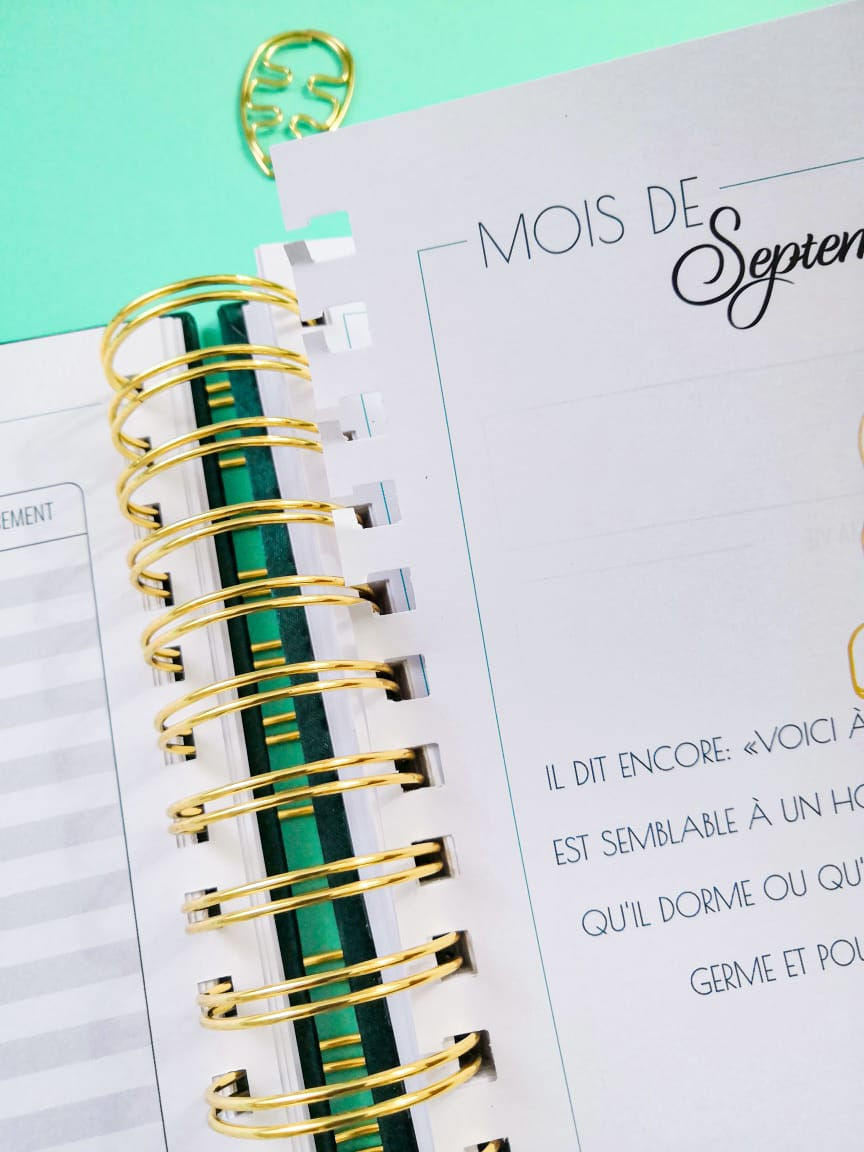 EMENT
MOIS DE
Septem
IL DIT ENCORE: «VOICI À
EST SEMBLABLE À UN HO
QU'IL DORME OU QU'
GERME ET POU